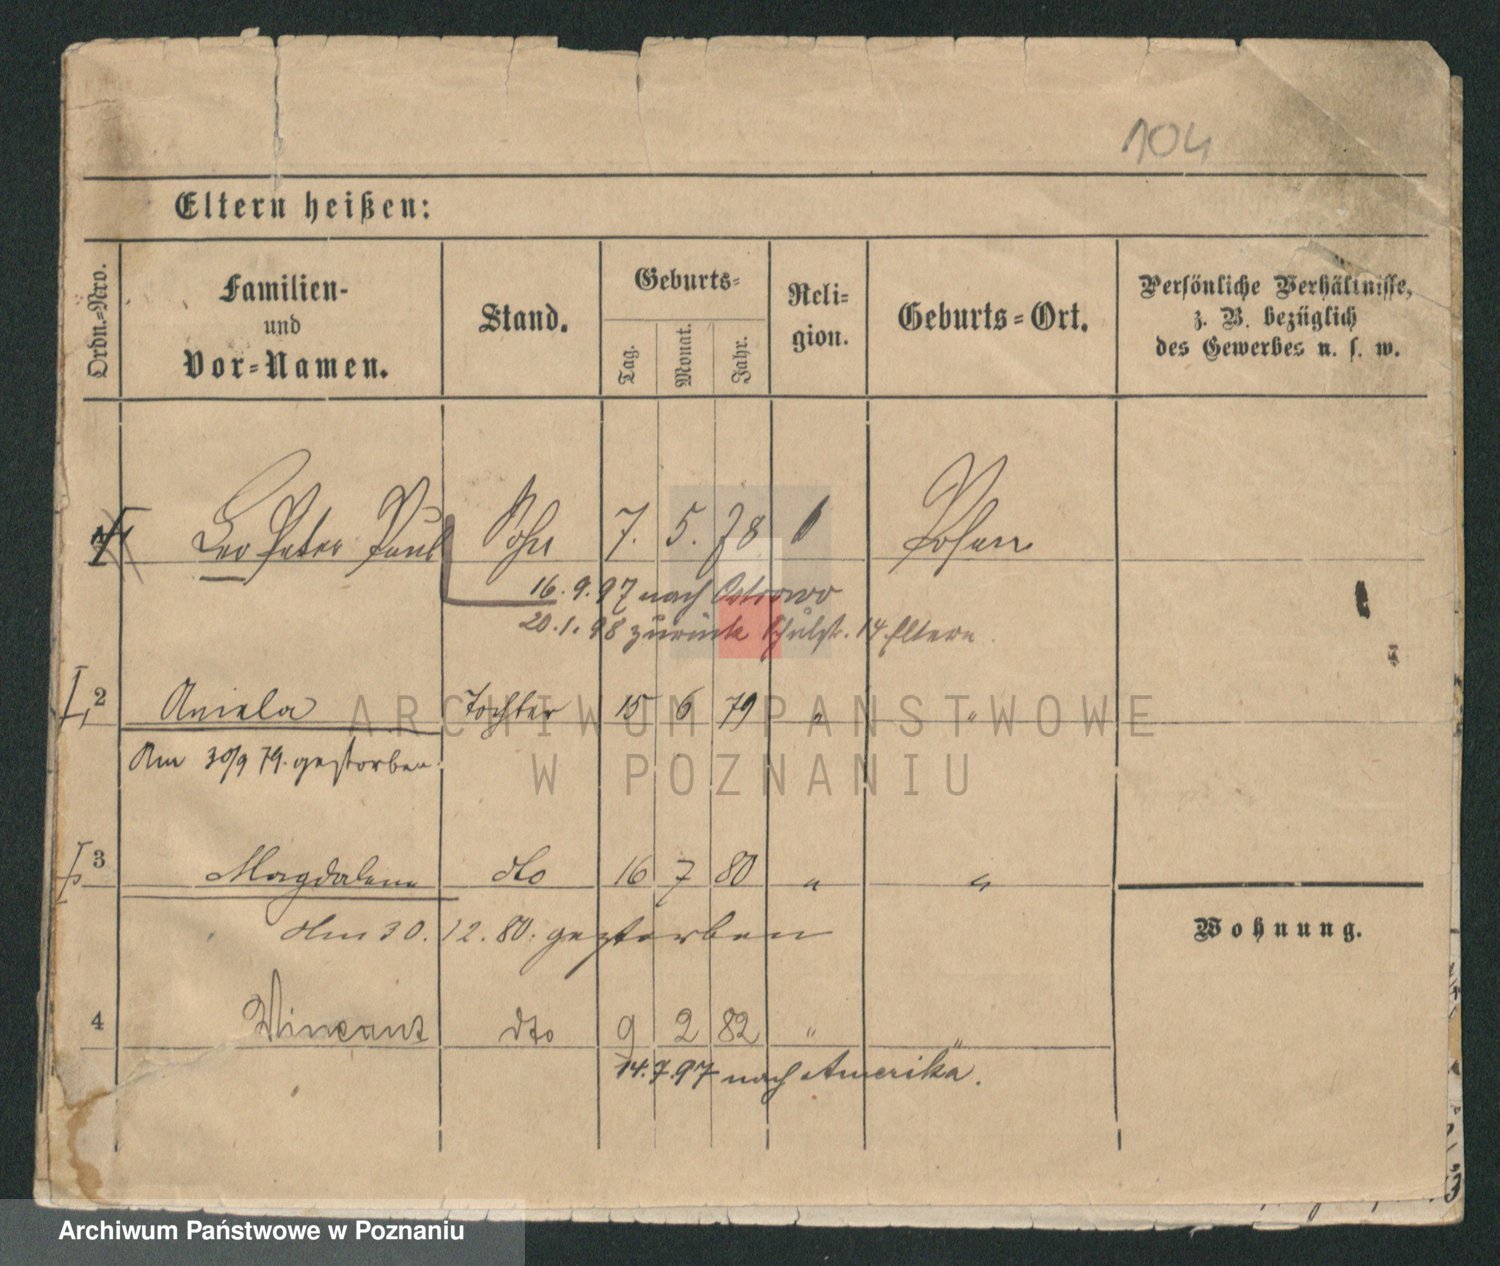 104
Eltern heißen:
Ordn.-Nro.
Familien-
und
Vor-Namen.
Stand.
Geburts-
Tag.
Monat.
Jahr.
Reli-
gion.
Geburts-Ort.
Persönliche Verhältnisse,
z. B. bezüglich
des Gewerbes u. s. w.
Leo Peter Paul Sohn 7. 5. 78 Posen
16.9.97 nach Ostrowo
20.1.98 zurück Schulstr. 14 Eltern.
2 Aniela Tochter 15 6 79 " "
Am 30/9 79. gestorben.
3 Magdalena dto 16 7 80 " "
Am 30. 12. 80. gestorben
Wohnung.
4 Vincent dto 9 2 82 " "
14.7.97 nach Amerika.
ARCHIWUM PAŃSTWOWE
W POZNANIU
Archiwum Państwowe w Poznaniu